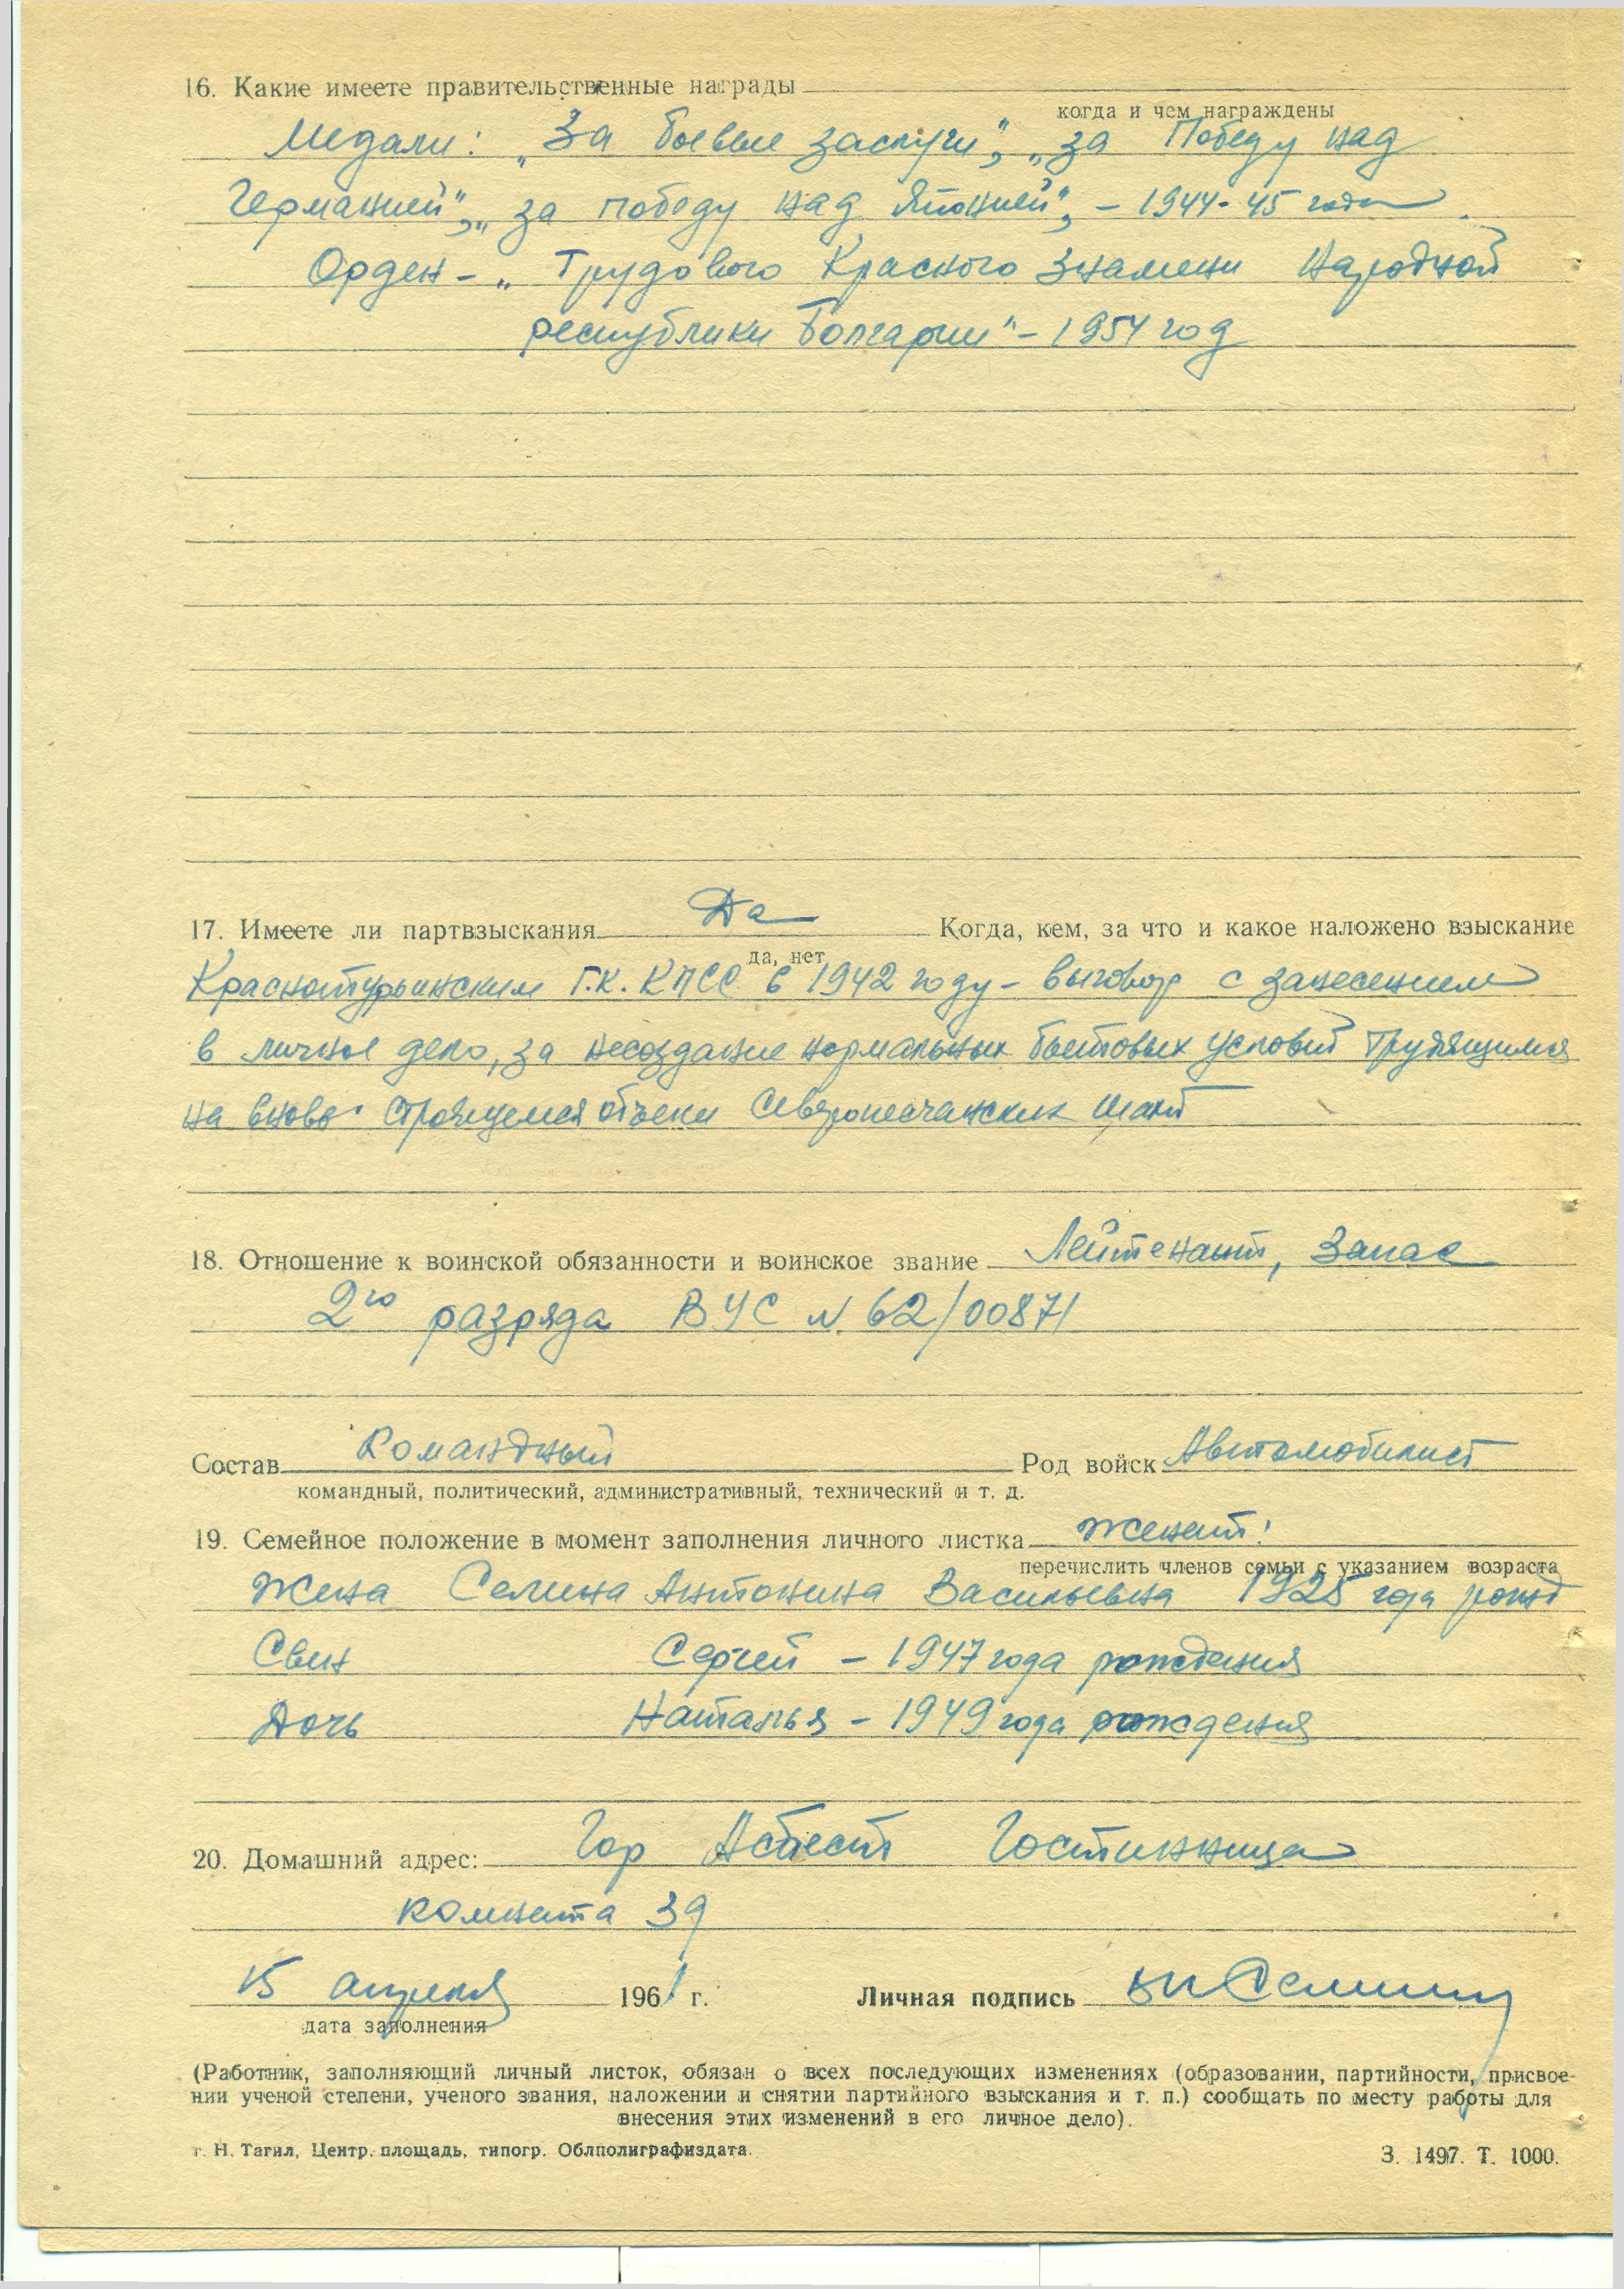 16. Какие имеете правительственные награды
когда и чем награждены
Медали: „За боевые заслуги", „за Победу над
Германией", „за победу над Японией", – 1944-45 годы.
Орден – „Трудового Красного Знамени Народной
республики Болгарии" – 1954 год
17. Имеете ли партвзыскания Да Когда, кем, за что и какое наложено взыскание
да, нет
Краснотурьинским Г.К. КПСС в 1942 году – выговор с занесением
в личное дело, за несоздание нормальных бытовых условий трудящимся
на вновь строящемся объекте Северопесчанских шахт
18. Отношение к воинской обязанности и воинское звание Лейтенант, Запас
2го разряда ВУС N 62/00871
Состав Командный Род войск Автомобилист
командный, политический, административный, технический и т. д.
19. Семейное положение в момент заполнения личного листка Женат:
перечислить членов семьи с указанием возраста
Жена Селина Антонина Васильевна 1925 года рожд
Сын Сергей – 1947 года рождения
Дочь Наталья – 1949 года рождения
20. Домашний адрес: Гор Асбест Гостинница
комната 39
15 апреля 1961 г. Личная подпись
дата заполнения
(Работник, заполняющий личный листок, обязан о всех последующих изменениях (образовании, партийности, присвое-
нии ученой степени, ученого звания, наложении и снятии партийного взыскания и т. п.) сообщать по месту работы для
внесения этих изменений в его личное дело).
г. Н. Тагил, Центр. площадь, типогр. Облполиграфиздата.
З. 1497. Т. 1000.